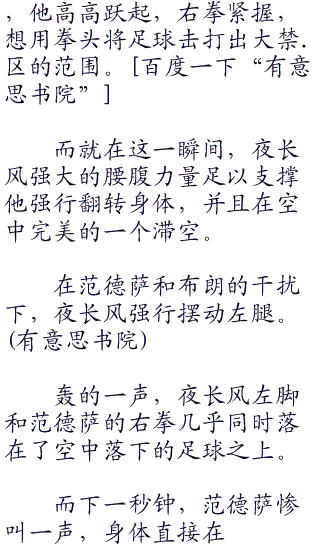 ，他高高跃起，右拳紧握，
想用拳头将足球击打出大禁.
区的范围。[百度一下“有意
思书院”]
而就在这一瞬间，夜长
风强大的腰腹力量足以支撑
他强行翻转身体，并且在空
中完美的一个滞空。
在范德萨和布朗的干扰
下，夜长风强行摆动左腿。
(有意思书院)
轰的一声，夜长风左脚
和范德萨的右拳几乎同时落
在了空中落下的足球之上。
而下一秒钟，范德萨惨
叫一声，身体直接在